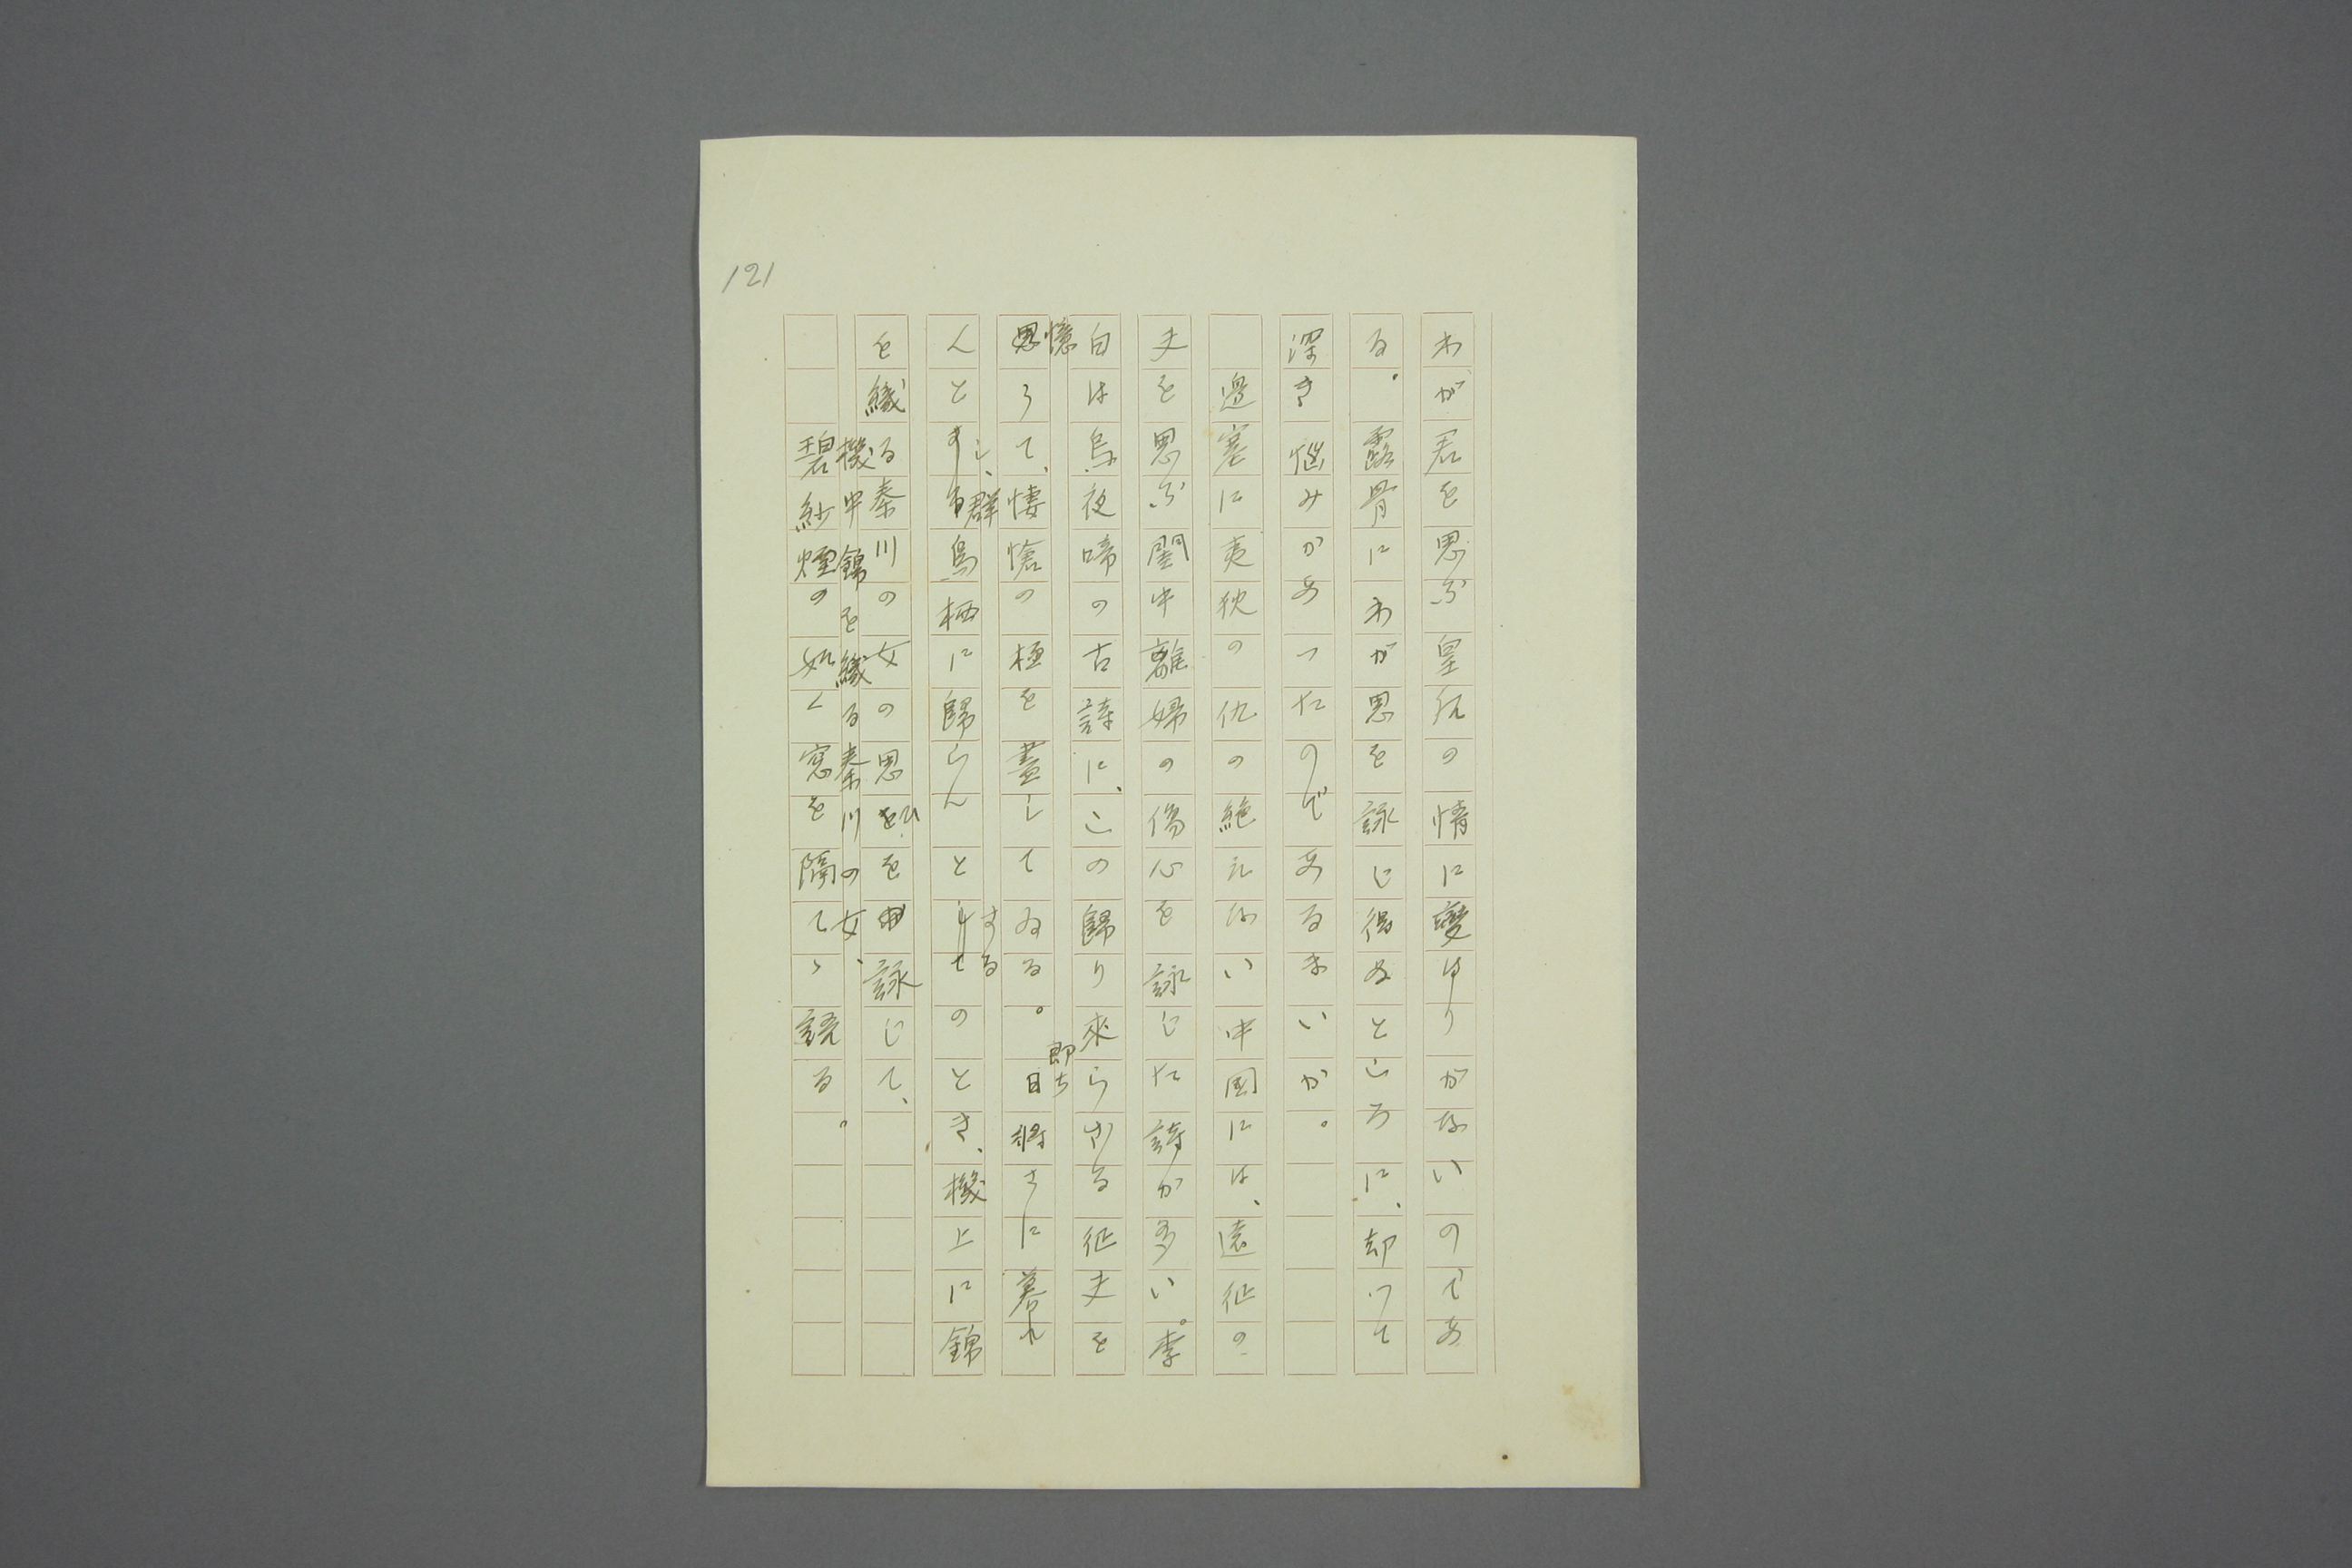 121
わが君を思ふ皇后の情に變りがないのであ
る。露骨にわが思を詠じ得ぬところに、却つて
深き悩みがあつたのであるまいか。
邊塞に夷狄の仇の絶えない中國には、遠征の
夫を思ふ閨中離婦の傷心を詠じた詩が多い。李
白は烏夜啼の古詩に、この歸り來らざる征夫を
憶うて、悽愴の極を盡してゐる。即ち日将さに暮れ
んとし、群烏栖に歸らんとするのとき、機上に錦
を織る秦川の女の思ひを詠じて、
機中錦を織る秦川の女、
碧紗煙の如く窓を隔てゝ語る。